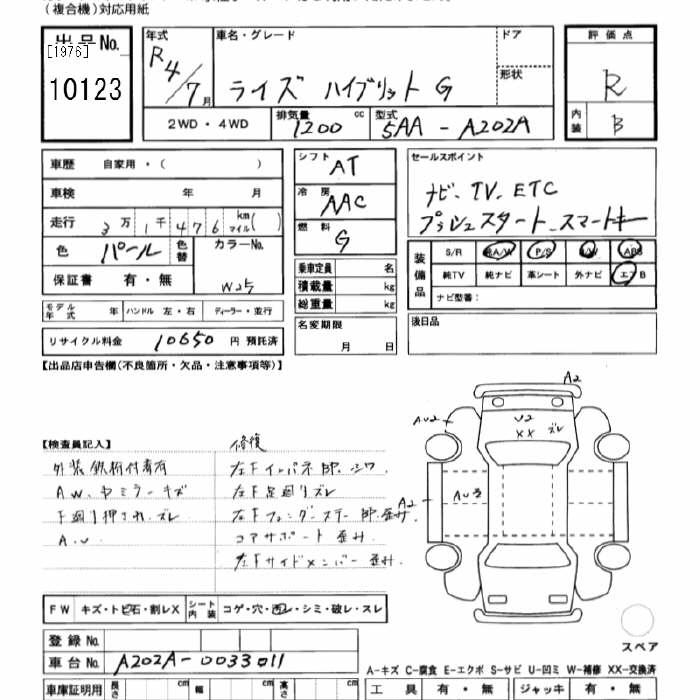 (複合機)対応用紙
出品No.
[1976]
10123
年式 R4/7月
車名・グレード
ライズ ハイブリット G
ドア
形状
2WD・4WD
排気量 1200 cc
型式 5AA-A202A
評価点
R
内装 B
車歴 自家用・( )
車検 年 月
走行 3万1千476 km マイル( )
色 パール 色替 カラーNo. W25
保証書 有・無
モデル年式 年 ハンドル 左・右 ディーラー・並行
リサイクル料金 10650 円 預託済
シフト AT
冷房 AAC
燃料 G
乗車定員 名
積載量 kg
総重量 kg
名変期限
月 日
セールスポイント
ナビ、TV、ETC
プッシュスタート、スマートキー
装備品
S/R A/W P/S P/W ABS
純TV 純ナビ 革シート 外ナビ エアB
ナビ型番:
後日品
【出品店申告欄(不良箇所・欠品・注意事項等)】
【検査員記入】
修復
外装鉄粉付着有
左Fインパネ部、シワ
AW、ヤミラーキズ
左F足廻りズレ
下廻り押され、ズレ
左Fフェンダーステー部、歪み
A.U
コアサポート歪み
左Fサイドメンバー歪み
A2
AU2
U2
XX ズレ
A2
AU3
FW キズ・トビ石・割レX シート内装 コゲ・穴・凹レ・シミ・破レ・スレ
登録No.
車台No. A202A-0033011
スペア
A-キズ C-腐食 E-エクボ S-サビ U-凹ミ W-補修 XX-交換済
車庫証明用 長さ cm 幅 cm 高さ cm
工具 有・無 ジャッキ 有・無